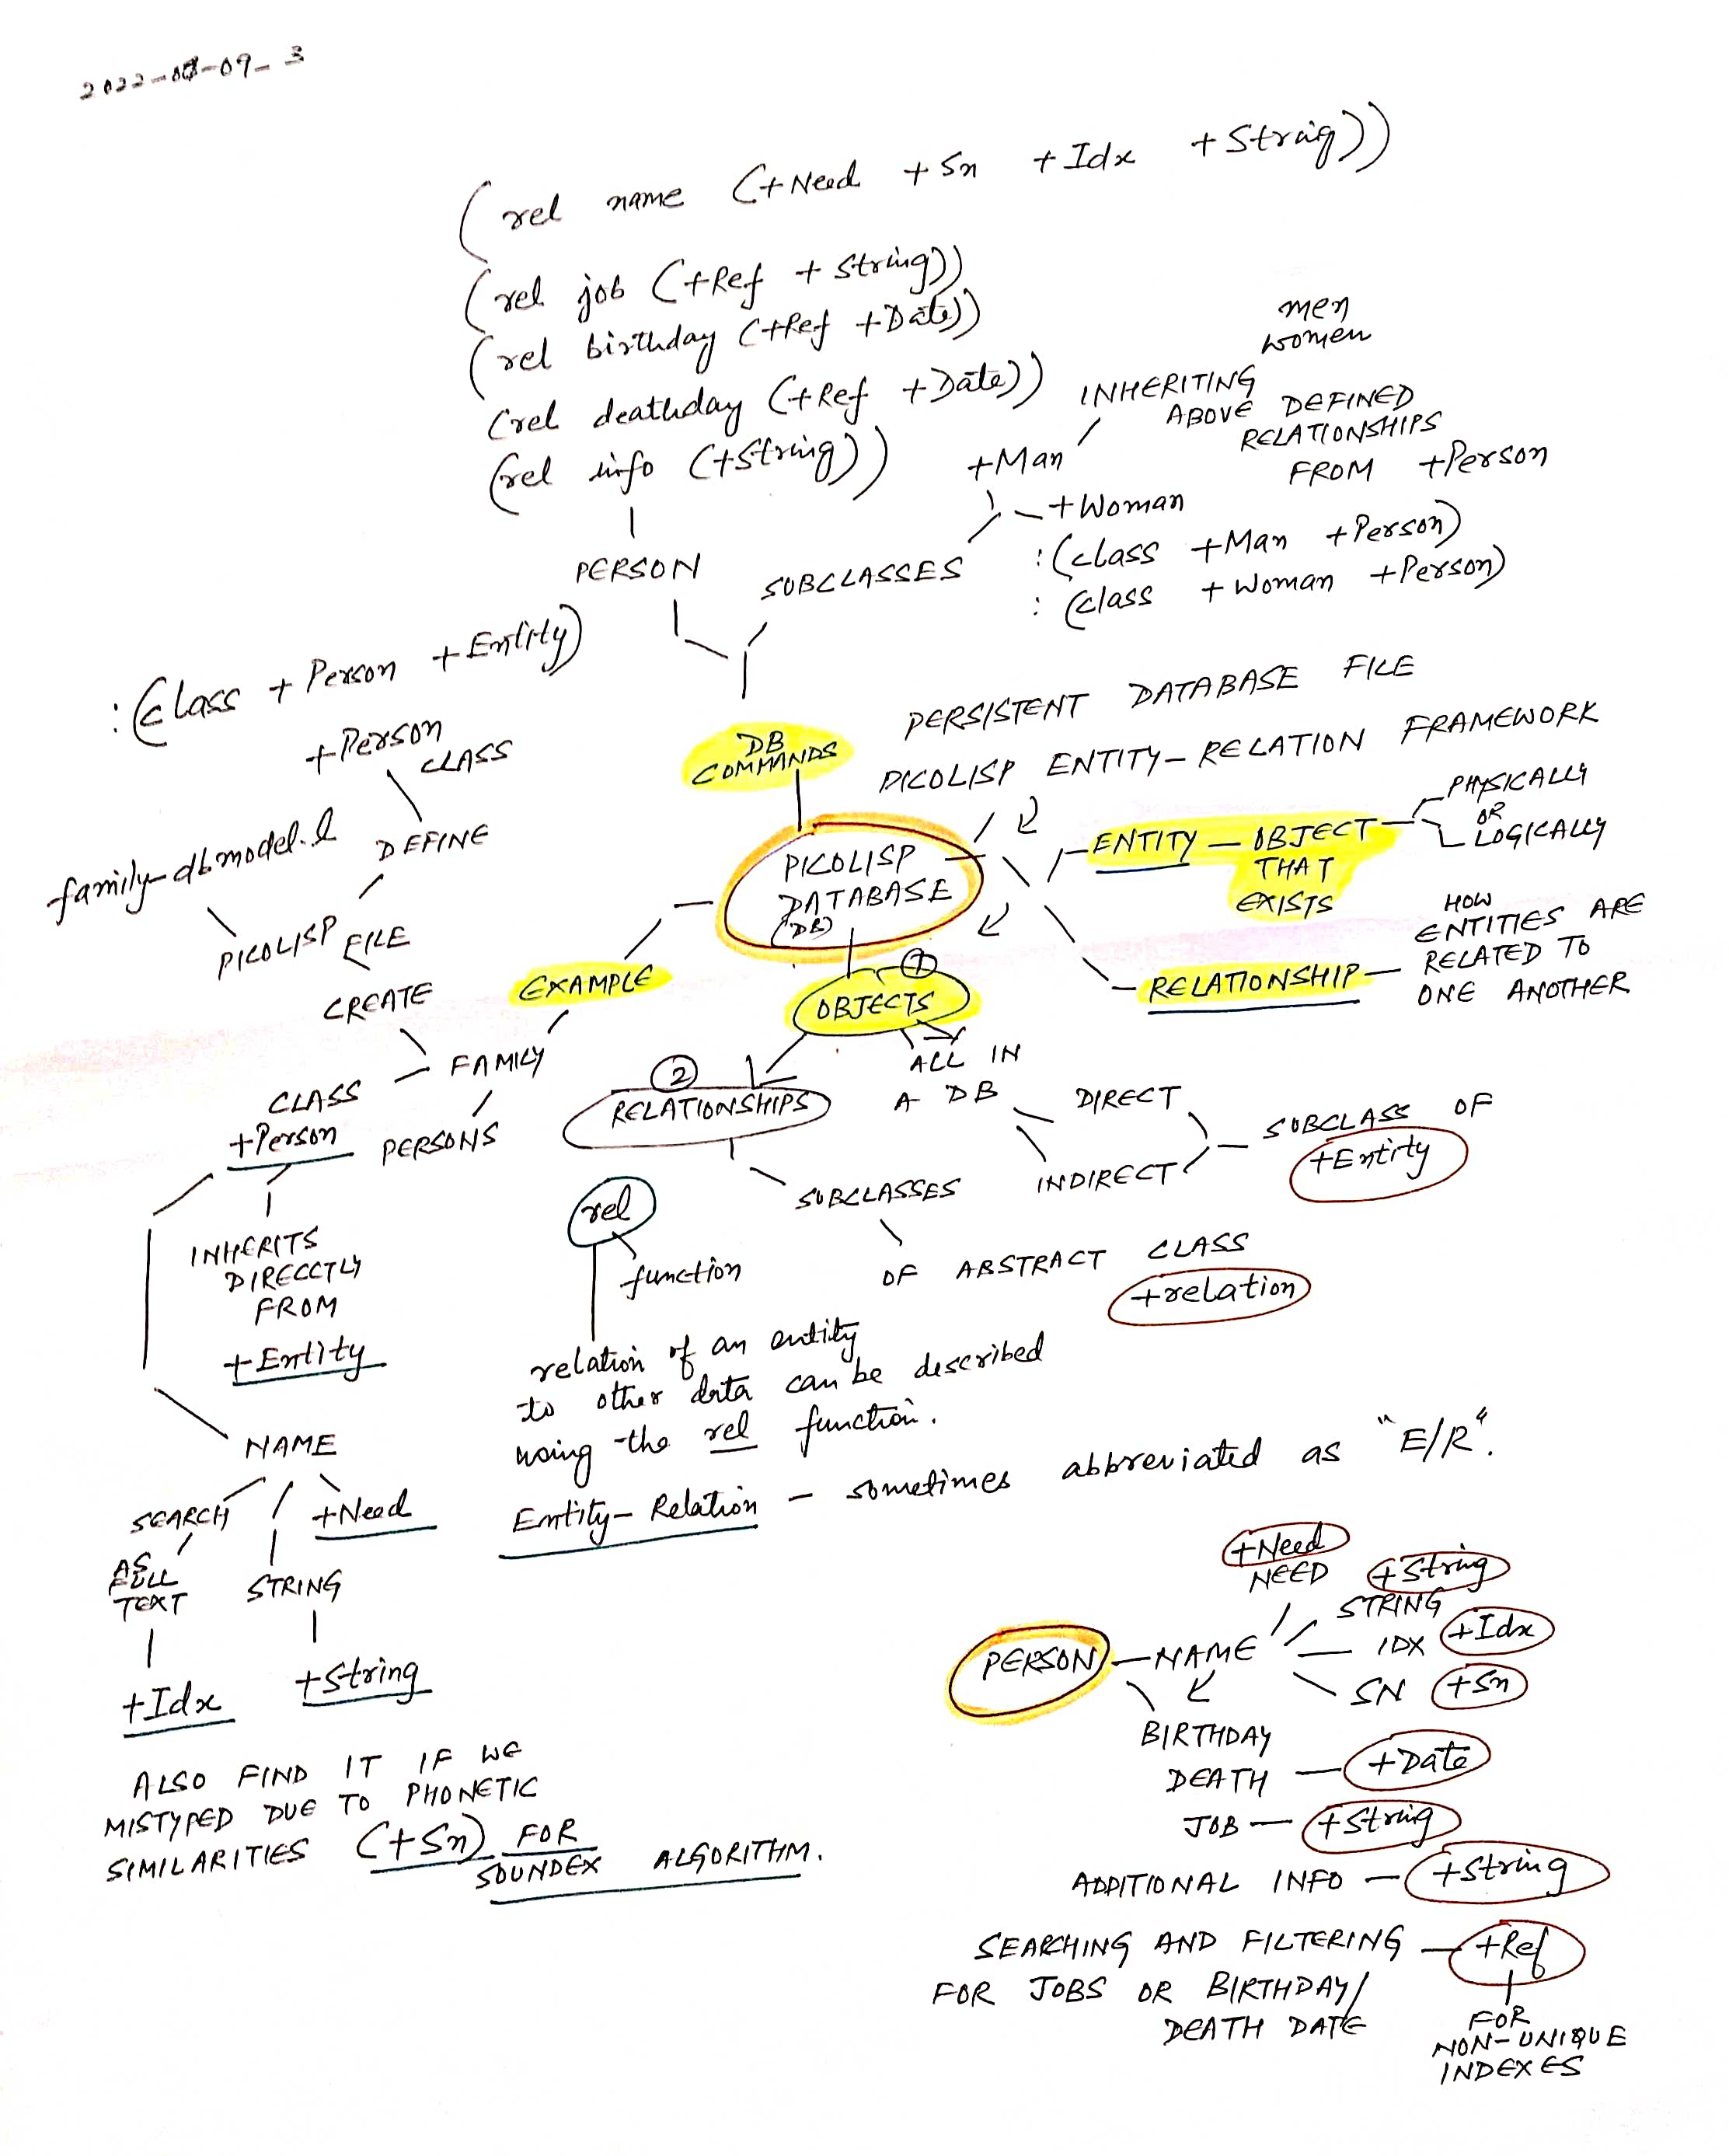 2022-08-09_3
(rel name (+Need +Sn +Idx +String))
(rel job (+Ref +String))
(rel birthday (+Ref +Date))
(rel deathday (+Ref +Date))
(rel info (+String))
PERSON
men
women
INHERITING
ABOVE DEFINED
RELATIONSHIPS
FROM +Person
+Man
+Woman
SUBCLASSES
:(class +Man +Person)
:(class +Woman +Person)
:(class +Person +Entity)
+Person
CLASS
DEFINE
family-dbmodel.l
PICOLISP FILE
CREATE
DB
COMMANDS
PERSISTENT DATABASE FILE
PICOLISP ENTITY-RELATION FRAMEWORK
PICOLISP
DATABASE
(DB)
ENTITY — OBJECT
THAT
EXISTS
PHYSICALLY
OR
LOGICALLY
RELATIONSHIP —
HOW
ENTITIES ARE
RELATED TO
ONE ANOTHER
EXAMPLE
FAMILY
PERSONS
CLASS
+Person
INHERITS
DIRECCTLY
FROM
+Entity
NAME
SEARCH
AS
FULL
TEXT
+Idx
STRING
+String
+Need
ALSO FIND IT IF WE
MISTYPED DUE TO PHONETIC
SIMILARITIES (+Sn) FOR
SOUNDEX ALGORITHM.
1
OBJECTS
ALL IN
A DB
DIRECT
INDIRECT
SUBCLASS OF
+Entity
2
RELATIONSHIPS
SUBCLASSES
OF ABSTRACT CLASS
+relation
rel
function
relation of an entity
to other data can be described
using the rel function.
Entity-Relation - sometimes abbreviated as "E/R".
PERSON — NAME
+Need
NEED
+String
STRING
IDX +Idx
SN +Sn
BIRTHDAY
DEATH — +Date
JOB — +String
ADDITIONAL INFO — +String
SEARCHING AND FILTERING — +Ref
FOR JOBS OR BIRTHDAY/
DEATH DATE
FOR
NON-UNIQUE
INDEXES